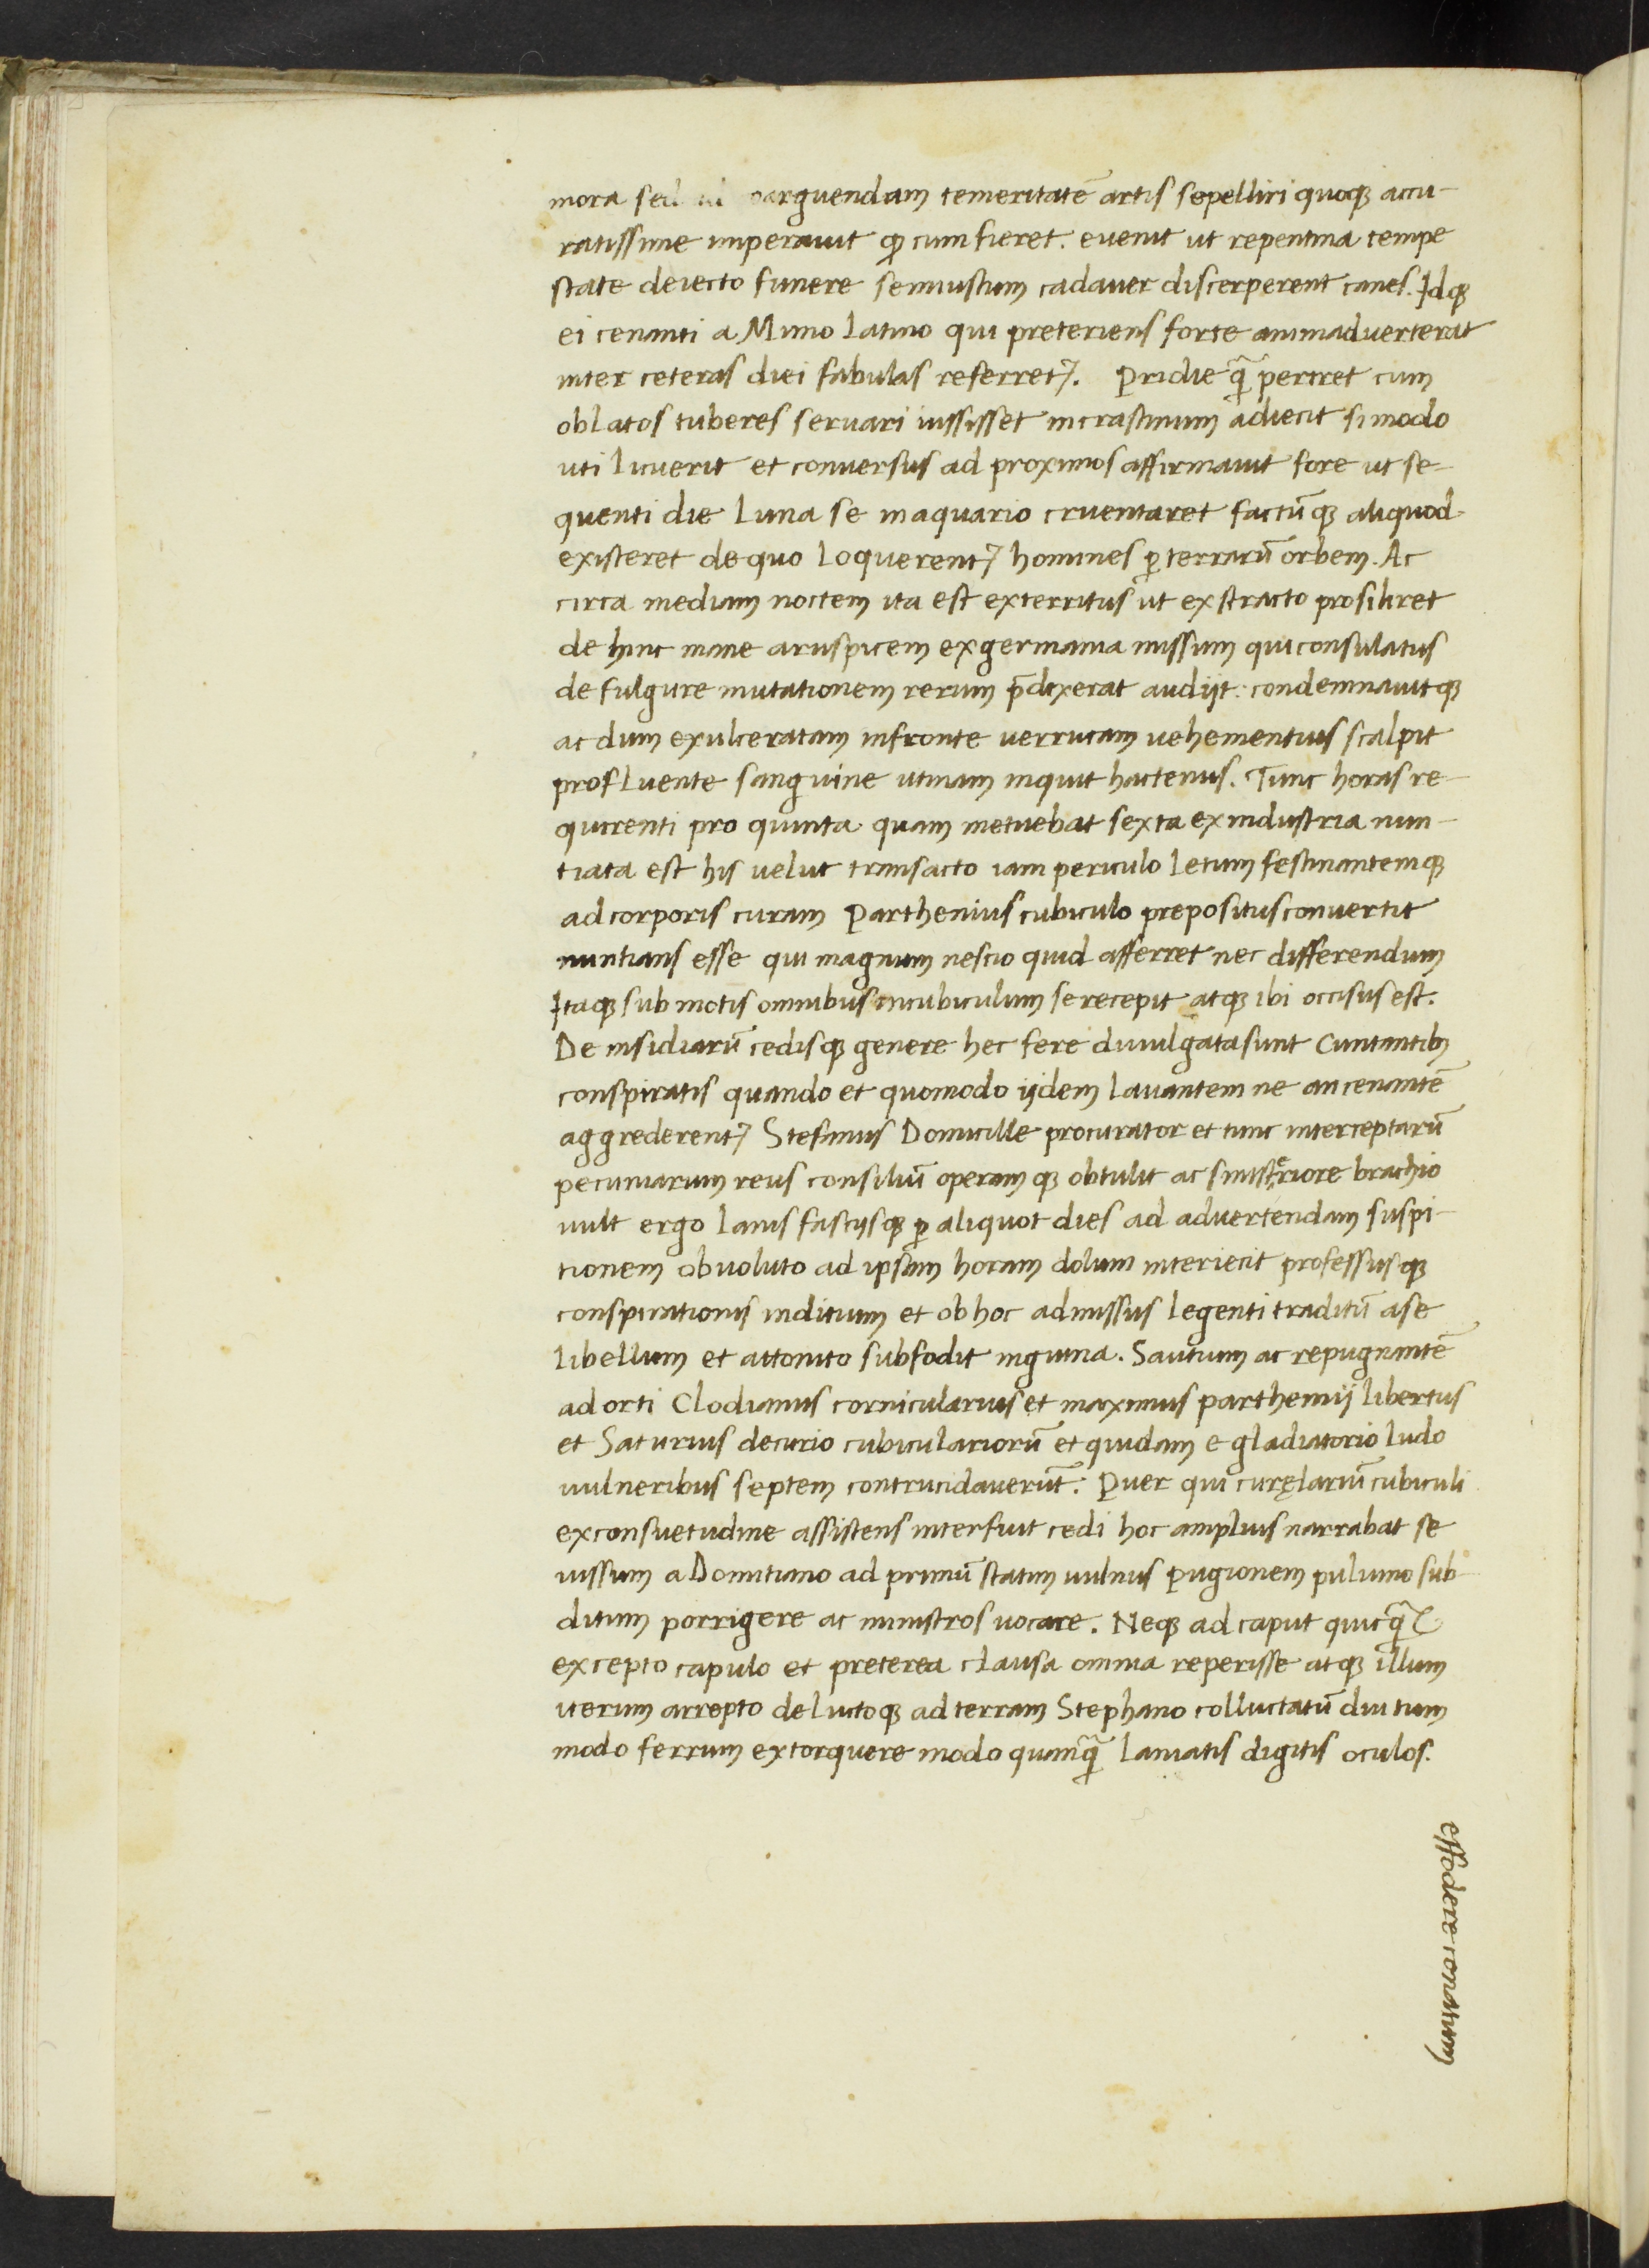 mora sed ad coarguendam temeritatē artis sepelliri quoqꝫ accu-
ratissime imperauit ꝙ cum fieret. euenit ut repentina tempe
state deiecto funere semiustum cadauer discerperent canes. Idqꝫ
ei cenanti a Mimo Latino qui preteriens forte animaduerterat
inter ceteras diei fabulas referret᷑. Pridie q̄ periret cum
oblatos tuberes seruari iussisset incrastinum adiecit si modo
uti licuerit et conuersus ad proximos affirmauit fore ut se-
quenti die Luna se inaquario cruentaret factūqꝫ aliquod
existeret de quo loquerent᷑ homines ꝑ terrarū orbem. Ac
circa mediam noctem ita est exterritus ut exstracto prosiliret
de hinc mane aruspicem exgermania missum qui consulatus
de fulgure mutationem rerum p̄dixerat audijt: condemnauitqꝫ
ac dum exulceratam infronte uerrucam uehementius scalpit
profluente sanguine utinam inquit hactenus. Tunc horas re-
quirenti pro quinta quam metuebat sexta exindustria nun-
tiata est his uelut transacto iam periculo letum festinantemqꝫ
ad corporis curam Parthenius cubiculo prepositus conuertit
nuntians esse qui magnum nescio quid afferret nec differendum
Itaqꝫ submotis omnibus incubiculum se recepit atqꝫ ibi occisus est.
De insidiarū cedisqꝫ genere hec fere diuulgata sunt Cuntantibꝫ
conspiratis quando et quomodo ijdem lauantem ne an cenantē
aggrederent᷑ Stefanus Domicille procurator et tunc interceptarū
pecuniarum reus consiliū operamqꝫ obtulit ac sinisteriore brachio
uult ergo lanis fascijsqꝫ ꝑ aliquot dies ad aduertendam suspi-
tionem obuoluto ad ipsam horam dolum interiecit professusqꝫ
conspirationis inditium et ob hoc admissus legenti traditū ase
libellum et attonito subfodit inguina. Sautium ac repugnantē
ad orti Clodianus cornicularius et maximus parthenij libertus
et Saturius decurio cubiculariorū et quidam e gladiatorio ludo
uulneribus septem contrucidauerūt. Puer qui curęlariū cubiculi
exconsuetudine assistens interfuit cedi hoc amplius narrabat se
iussum a Domitiano ad primū statim uulnus pugionem puluino sub-
ditum porrigere ac ministros uocare. Neqꝫ ad caput quicq̄
excepto capulo et preterea clausa omnia reperisse atqꝫ illum
iterum arrepto deluctoqꝫ ad terram Stephano colluctatū diu tum
modo ferrum extorquere modo quamq̄ laniatis digitis oculos.
effodere conatum